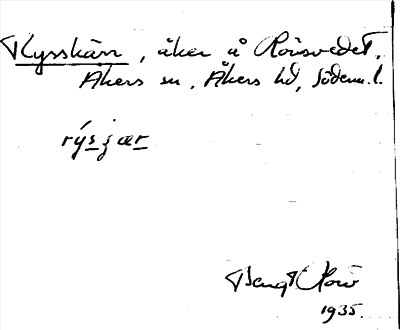 Rysskärr, åker å Rövsvedet.
Åkers sn, Åkers hd, Söderm. l.
rýsjær
Bengt
1935.